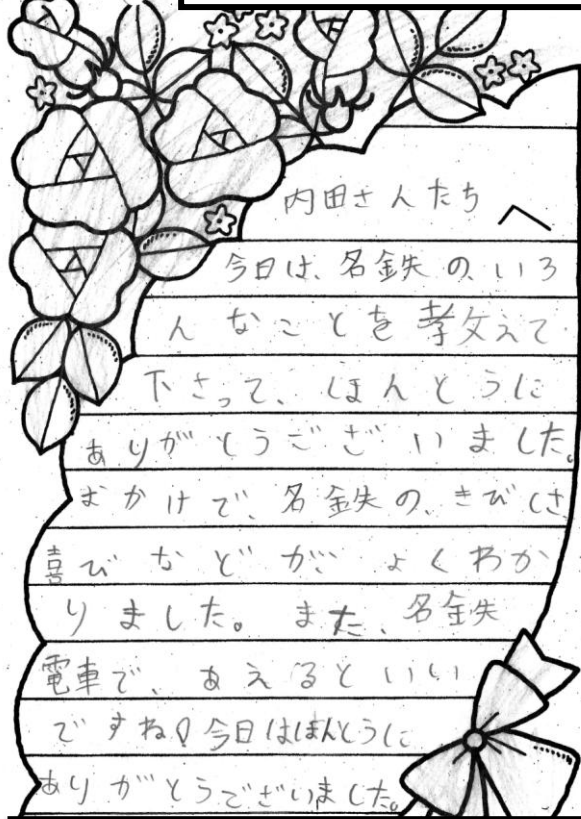 内田さんたち へ
今日は、名鉄の、いろ
んなことを教えて
下さって、ほんとうに
ありがとうございました。
おかけで、名鉄の、きびしさ
喜びなどが、よくわか
りました。また、名鉄
電車で、あえるといい
ですね!今日はほんとうに
ありがとうございました。